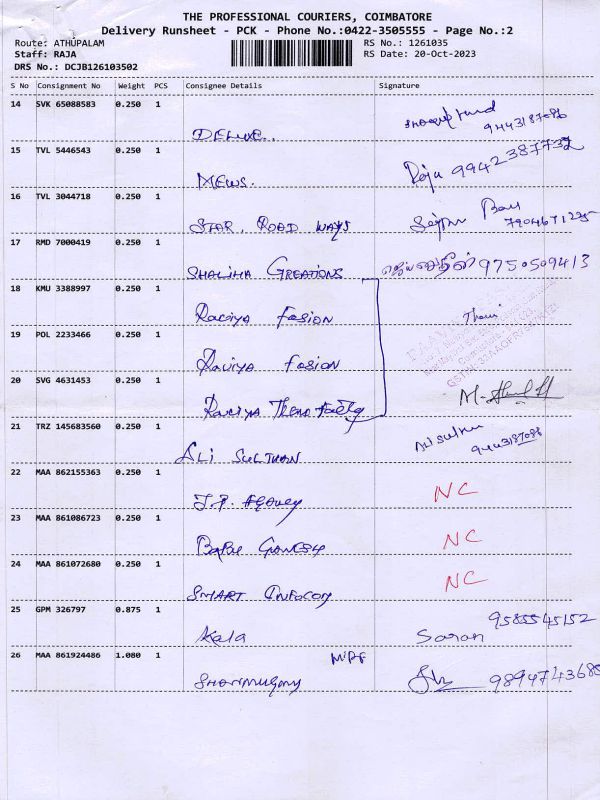 THE PROFESSIONAL COURIERS, COIMBATORE
Delivery Runsheet - PCK - Phone No.:0422-3505555 - Page No.:2
Route: ATHUPALAM RS No.: 1261035
Staff: RAJA RS Date: 20-Oct-2023
DRS No.: DCJB126103502
S No Consignment No Weight PCS Consignee Details Signature
14 SVK 65088583 0.250 1
DELUXE. 9443187086
15 TVL 5446543 0.250 1
MEWS. Raju 9942387732
16 TVL 3044718 0.250 1
STAR. ROAD WAYS 7904671225
17 RMD 7000419 0.250 1
SHALIHA CREATIONS 9750509413
18 KMU 3388997 0.250 1
Raviya Fasion
19 POL 2233466 0.250 1
Raviya Fasion
20 SVG 4631453 0.250 1
Raviya
21 TRZ 145683560 0.250 1 Ali Sultan
ALI SULTHAN 9443187086
22 MAA 862155363 0.250 1
J.P. Agency NC
23 MAA 861086723 0.250 1
Babu GANESH NC
24 MAA 861072680 0.250 1
SMART INFOCOM NC
25 GPM 326797 0.875 1 9585545152
Kala Saran
26 MAA 861924486 1.080 1
Shanmugam 9894743685